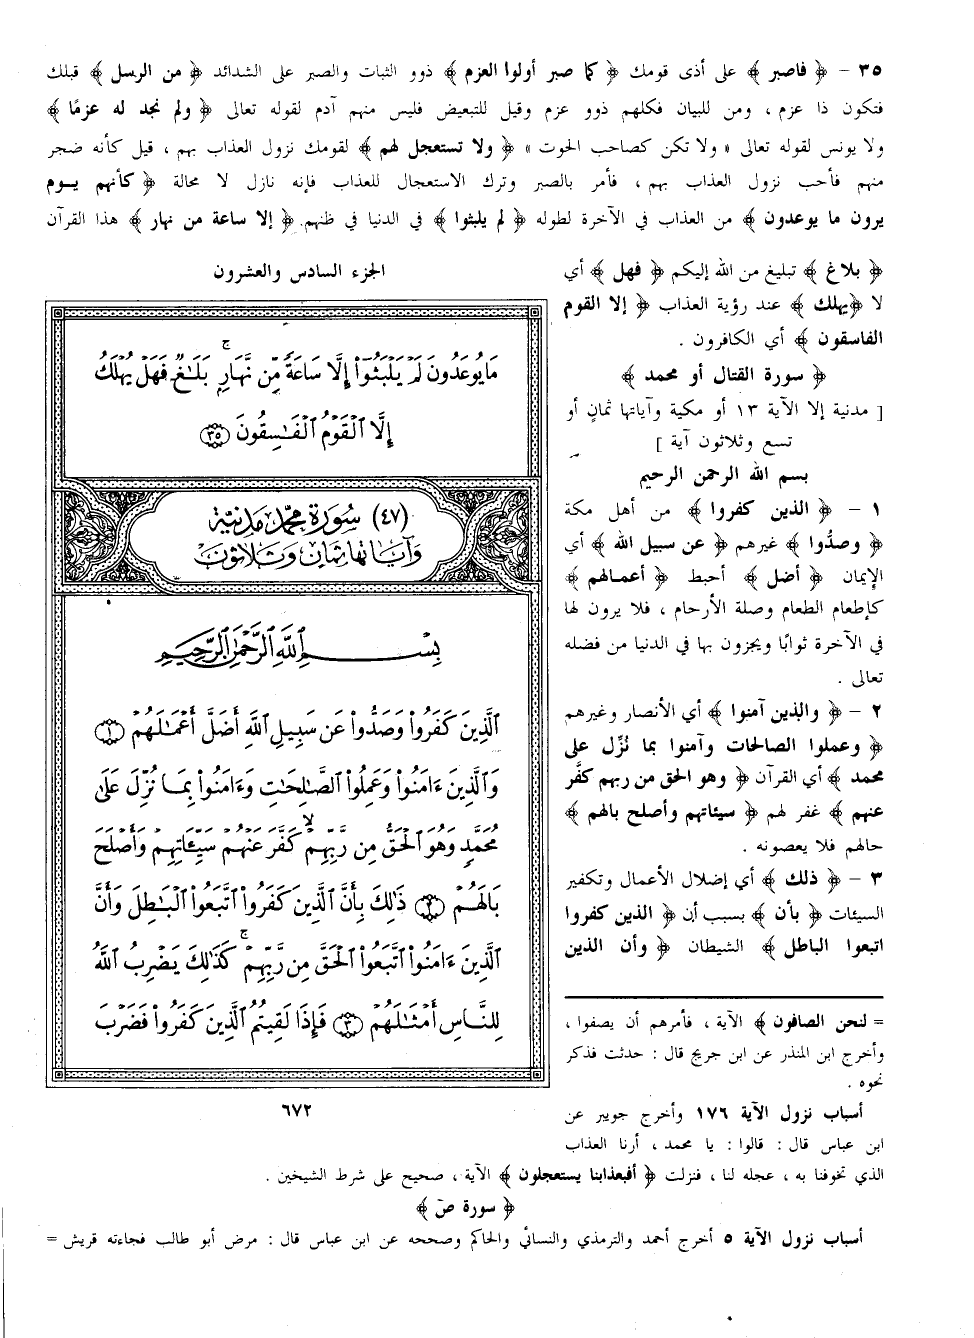 ٣٥ – ﴿ فاصبر ﴾ على أذى قومك ﴿ كما صبر أولوا العزم ﴾ ذوو الثبات والصبر على الشدائد ﴿ من الرسل ﴾ قبلك
فتكون ذا عزم ، ومن للبيان فكلهم ذوو عزم وقيل للتبعيض فليس منهم آدم لقوله تعالى ﴿ ولم نجد له عزمًا ﴾
ولا يونس لقوله تعالى « ولا تكن كصاحب الحوت » ﴿ ولا تستعجل لهم ﴾ لقومك نزول العذاب بهم ، قيل كأنه ضجر
منهم فأحب نزول العذاب بهم ، فأمر بالصبر وترك الاستعجال للعذاب فإنه نازل لا محالة ﴿ كأنهم يوم
يرون ما يوعدون ﴾ من العذاب في الآخرة لطوله ﴿ لم يلبثوا ﴾ في الدنيا في ظنهم ﴿ إلا ساعة من نهار ﴾ هذا القرآن
﴿ بلاغ ﴾ تبليغ من الله إليكم ﴿ فهل ﴾ أي
لا ﴿يهلك ﴾ عند رؤية العذاب ﴿ إلا القوم
الفاسقون ﴾ أي الكافرون .
﴿ سورة القتال أو محمد ﴾
[ مدنية إلا الآية ١٣ أو مكية وآياتها ثمانٍ أو
تسع وثلاثون آية ]
بسم الله الرحمن الرحيم
١ – ﴿ الذين كفروا ﴾ من أهل مكة
﴿ وصدُّوا ﴾ غيرهم ﴿ عن سبيل الله ﴾ أي
الإيمان ﴿ أضل ﴾ أحبط ﴿ أعمالهم ﴾
كإطعام الطعام وصلة الأرحام ، فلا يرون لها
في الآخرة ثوابًا ويجزون بها في الدنيا من فضله
تعالى .
٢ – ﴿ والذين آمنوا ﴾ أي الأنصار وغيرهم
﴿ وعملوا الصالحات وآمنوا بما نُزِّل على
محمد ﴾ أي القرآن ﴿ وهو الحق من ربهم كفَّر
عنهم ﴾ غفر لهم ﴿ سيئاتهم وأصلح بالهم ﴾
حالهم فلا يعصونه .
٣ – ﴿ ذلك ﴾ أي إضلال الأعمال وتكفير
السيئات ﴿ بأن ﴾ بسبب أن ﴿ الذين كفروا
اتبعوا الباطل ﴾ الشيطان ﴿ وأن الذين
الجزء السادس والعشرون
مَا يُوعَدُونَ لَمْ يَلْبَثُوٓا۟ إِلَّا سَاعَةً مِّن نَّهَارٍۭ ۚ بَلَٰغٌ ۚ فَهَلْ يُهْلَكُ
إِلَّا ٱلْقَوْمُ ٱلْفَٰسِقُونَ ٣٥
(٤٧) سورة محمد مدنية
وآياتها ثمان وثلاثون
بِسْمِ ٱللَّهِ ٱلرَّحْمَٰنِ ٱلرَّحِيمِ
ٱلَّذِينَ كَفَرُوا۟ وَصَدُّوا۟ عَن سَبِيلِ ٱللَّهِ أَضَلَّ أَعْمَٰلَهُمْ ١
وَٱلَّذِينَ ءَامَنُوا۟ وَعَمِلُوا۟ ٱلصَّٰلِحَٰتِ وَءَامَنُوا۟ بِمَا نُزِّلَ عَلَىٰ
مُحَمَّدٍ وَهُوَ ٱلْحَقُّ مِن رَّبِّهِمْ ۙ كَفَّرَ عَنْهُمْ سَيِّـَٔاتِهِمْ وَأَصْلَحَ
بَالَهُمْ ٢ ذَٰلِكَ بِأَنَّ ٱلَّذِينَ كَفَرُوا۟ ٱتَّبَعُوا۟ ٱلْبَٰطِلَ وَأَنَّ
ٱلَّذِينَ ءَامَنُوا۟ ٱتَّبَعُوا۟ ٱلْحَقَّ مِن رَّبِّهِمْ ۚ كَذَٰلِكَ يَضْرِبُ ٱللَّهُ
لِلنَّاسِ أَمْثَٰلَهُمْ ٣ فَإِذَا لَقِيتُمُ ٱلَّذِينَ كَفَرُوا۟ فَضَرْبَ
٦٧٢
= لنحن الصافون ﴾ الآية ، فأمرهم أن يصفوا ،
وأخرج ابن المنذر عن ابن جريج قال : حدثت فذكر
نحوه .
أسباب نزول الآية ١٧٦ وأخرج جويبر عن
ابن عباس قال : قالوا : يا محمد ، أرنا العذاب
الذي تخوفنا به ، عجله لنا ، فنزلت ﴿ أفبعذابنا يستعجلون ﴾ الآية ، صحيح على شرط الشيخين .
﴿ سورة صَ ﴾
أسباب نزول الآية ٥ أخرج أحمد والترمذي والنسائي والحاكم وصححه عن ابن عباس قال : مرض أبو طالب فجاءته قريش =